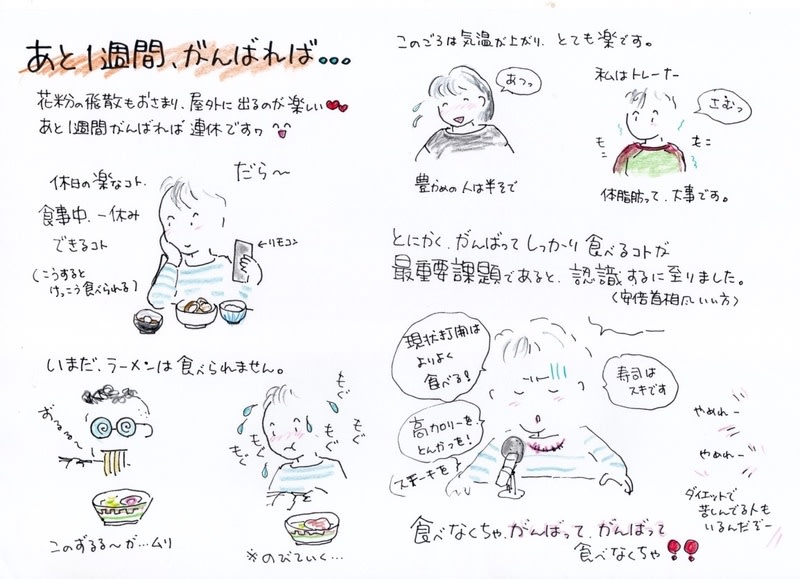 あと1週間、がんばれば…
花粉の飛散もおさまり、屋外に出るのが楽しい
あと1週間がんばれば連休ですヮ
休日の楽なコト、
食事中、一休み
できるコト
(こうすると
けっこう食べられる)
だら〜
←リモコン
いまだ、ラーメンは食べられません。
ずるる〜
このずるる〜が…ムリ
もぐ
もぐ
もぐ
もぐ
もぐ
※のびていく…
このごろは気温が上がり、とても楽です。
あつっ
豊かめの人は半そで
私はトレーナー
さむっ
もこ
もこ
体脂肪って、大事です。
とにかく、がんばってしっかり食べるコトが
最重要課題であると、認識するに至りました。
(安倍首相風いい方)
現状打開は
よりよく
食べる!
高カロリーを
とんかつを!
ステーキを?
寿司は
スキです
やめれー
やめれー
ダイエットで
苦しんでる人も
いるんだぞー
食べなくちゃ、がんばって、がんばって
食べなくちゃ!!